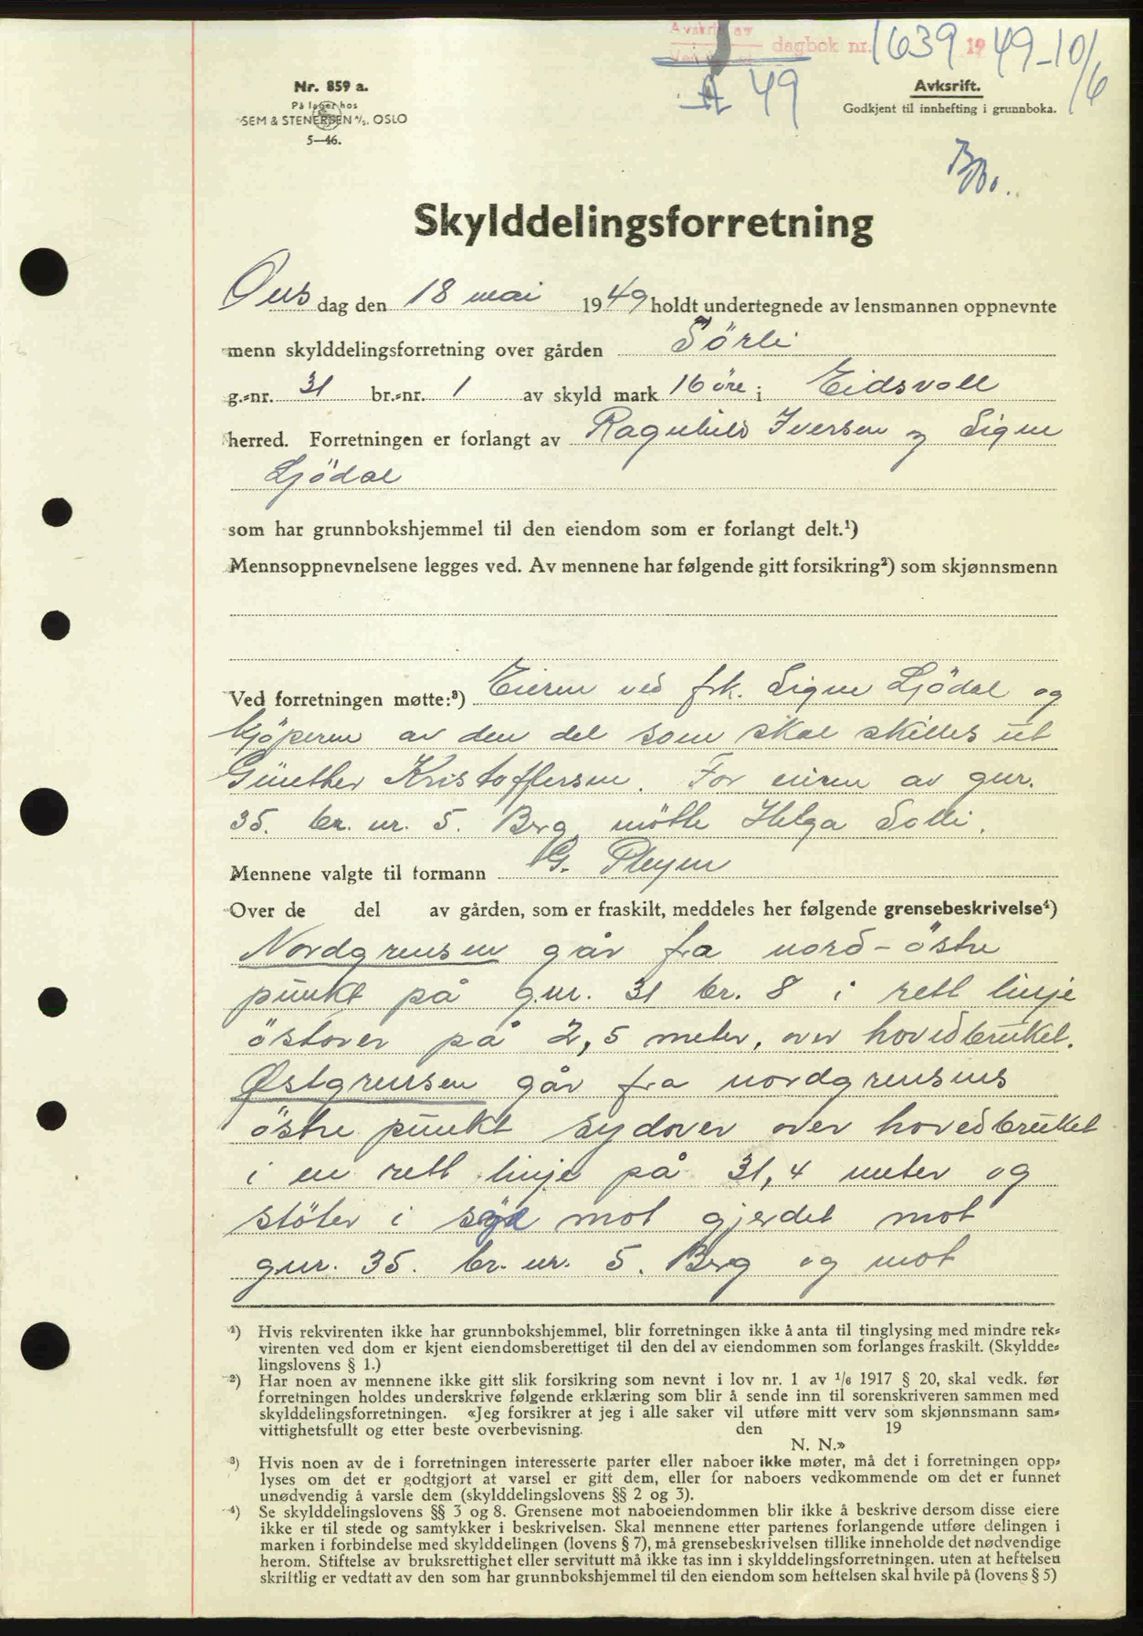 Avskrift av dagbok nr. 1639 1949-10/6
A 49
Nr. 859 a.
På lager hos
SEM & STENERSEN A/S. OSLO
5—46.
Avksrift.
Godkjent til innhefting i grunnboka.
Skylddelingsforretning
Ons dag den 18 mai 1949 holdt undertegnede av lensmannen oppnevnte
menn skylddelingsforretning over gården Sörli
g.-nr. 31 br.-nr. 1 av skyld mark 16 öre i Eidsvoll
herred. Forretningen er forlangt av Ragnhild Iversen og Signe
Ljödal
som har grunnbokshjemmel til den eiendom som er forlangt delt.¹)
Mennsoppnevnelsene legges ved. Av mennene har følgende gitt forsikring²) som skjønnsmenn
Ved forretningen møtte:³) Eieren ved frk. Signe Ljödal og
kjöperen av den del som skal skilles ut
Günther Kristoffersen. For eieren av gnr.
35. br. nr. 5. Berg mötte Helga Solli.
Mennene valgte til formann G. Pleym
Over de del av gården, som er fraskilt, meddeles her følgende grensebeskrivelse⁴)
Nordgrensen går fra nord-östre
punkt på g.nr. 31 br. 8 i rett linje
östover på 2,5 meter, over hovedbruket.
Østgrensen går fra nordgrensens
östre punkt sydover over hovedbruket
i en rett linje på 31,4 meter og
stöter i syd mot gjerdet mot
gnr. 35. br. nr. 5. Berg og mot
¹) Hvis rekvirenten ikke har grunnbokshjemmel, blir forretningen ikke å anta til tinglysing med mindre rek-
virenten ved dom er kjent eiendomsberettiget til den del av eiendommen som forlanges fraskilt. (Skyldde-
lingslovens § 1.)
²) Har noen av mennene ikke gitt slik forsikring som nevnt i lov nr. 1 av 1/6 1917 § 20, skal vedk. før
forretningen holdes underskrive følgende erklæring som blir å sende inn til sorenskriveren sammen med
skylddelingsforretningen. «Jeg forsikrer at jeg i alle saker vil utføre mitt verv som skjønnsmann sam-
vittighetsfullt og etter beste overbevisning. den 19
N. N.»
³) Hvis noen av de i forretningen interesserte parter eller naboer ikke møter, må det i forretningen opp-
lyses om det er godtgjort at varsel er gitt dem, eller for naboers vedkommende om det er funnet
unødvendig å varsle dem (skylddelingslovens §§ 2 og 3).
⁴) Se skylddelingslovens §§ 3 og 8. Grensene mot naboeiendommen blir ikke å beskrive dersom disse eiere
ikke er til stede og samtykker i beskrivelsen. Skal mennene etter partenes forlangende utføre delingen i
marken i forbindelse med skylddelingen (lovens § 7), må grensebeskrivelsen tillike inneholde det nødvendige
herom. Stiftelse av bruksrettighet eller servitutt må ikke tas inn i skylddelingsforretningen. uten at heftelsen
skriftlig er vedtatt av den som har grunnbokshjemmel til den eiendom som heftelsen skal hvile på (lovens § 5)